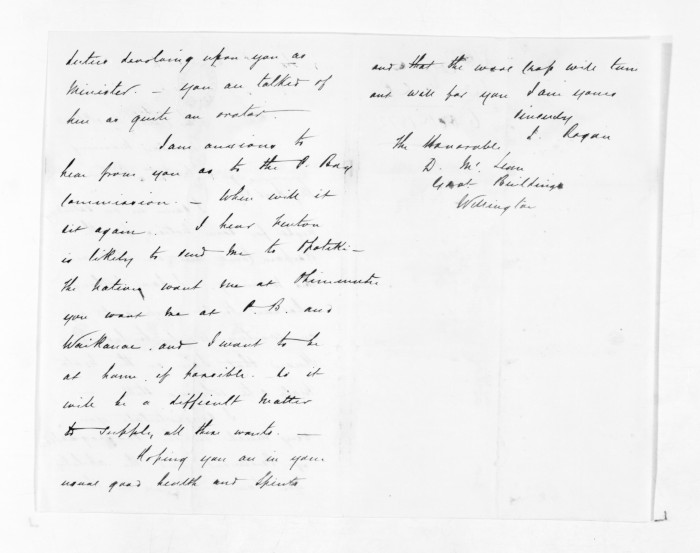 duties devolving upon you as
Minister. — you are talked of
here as quite an orator. —
I am anxious to
hear from you as to the P. Bay
Commission. — When will it
sit again. I hear Fenton
is likely to send me to Opotiki —
The natives want me at Ohinemutu
you want me at P. B. and
Waikanae. and I want to be
at home if possible. So it
will be a difficult matter
to supply all these wants. —
Hoping you are in your
usual good health and spirits
and that the wool crop will turn
out well for you I am yours
Sincerely
J. Rogan
The Honorable
D. McLean
Govt Buildings
Wellington